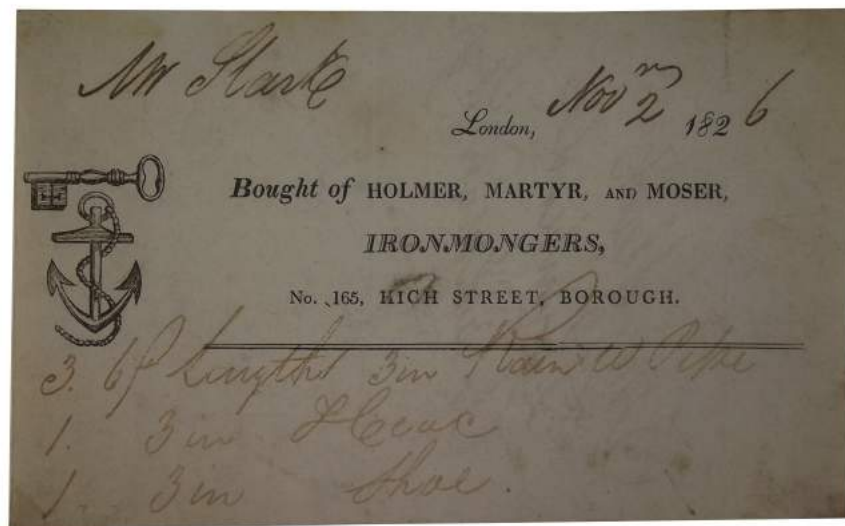 Mr Stark
London, Nov 2 1826
Bought of HOLMER, MARTYR, AND MOSER,
IRONMONGERS,
No. 165, HIGH STREET, BOROUGH.
3. 6f Lengths 3in Rain W Pipe
1. 3in Head
1. 3in Shoe.